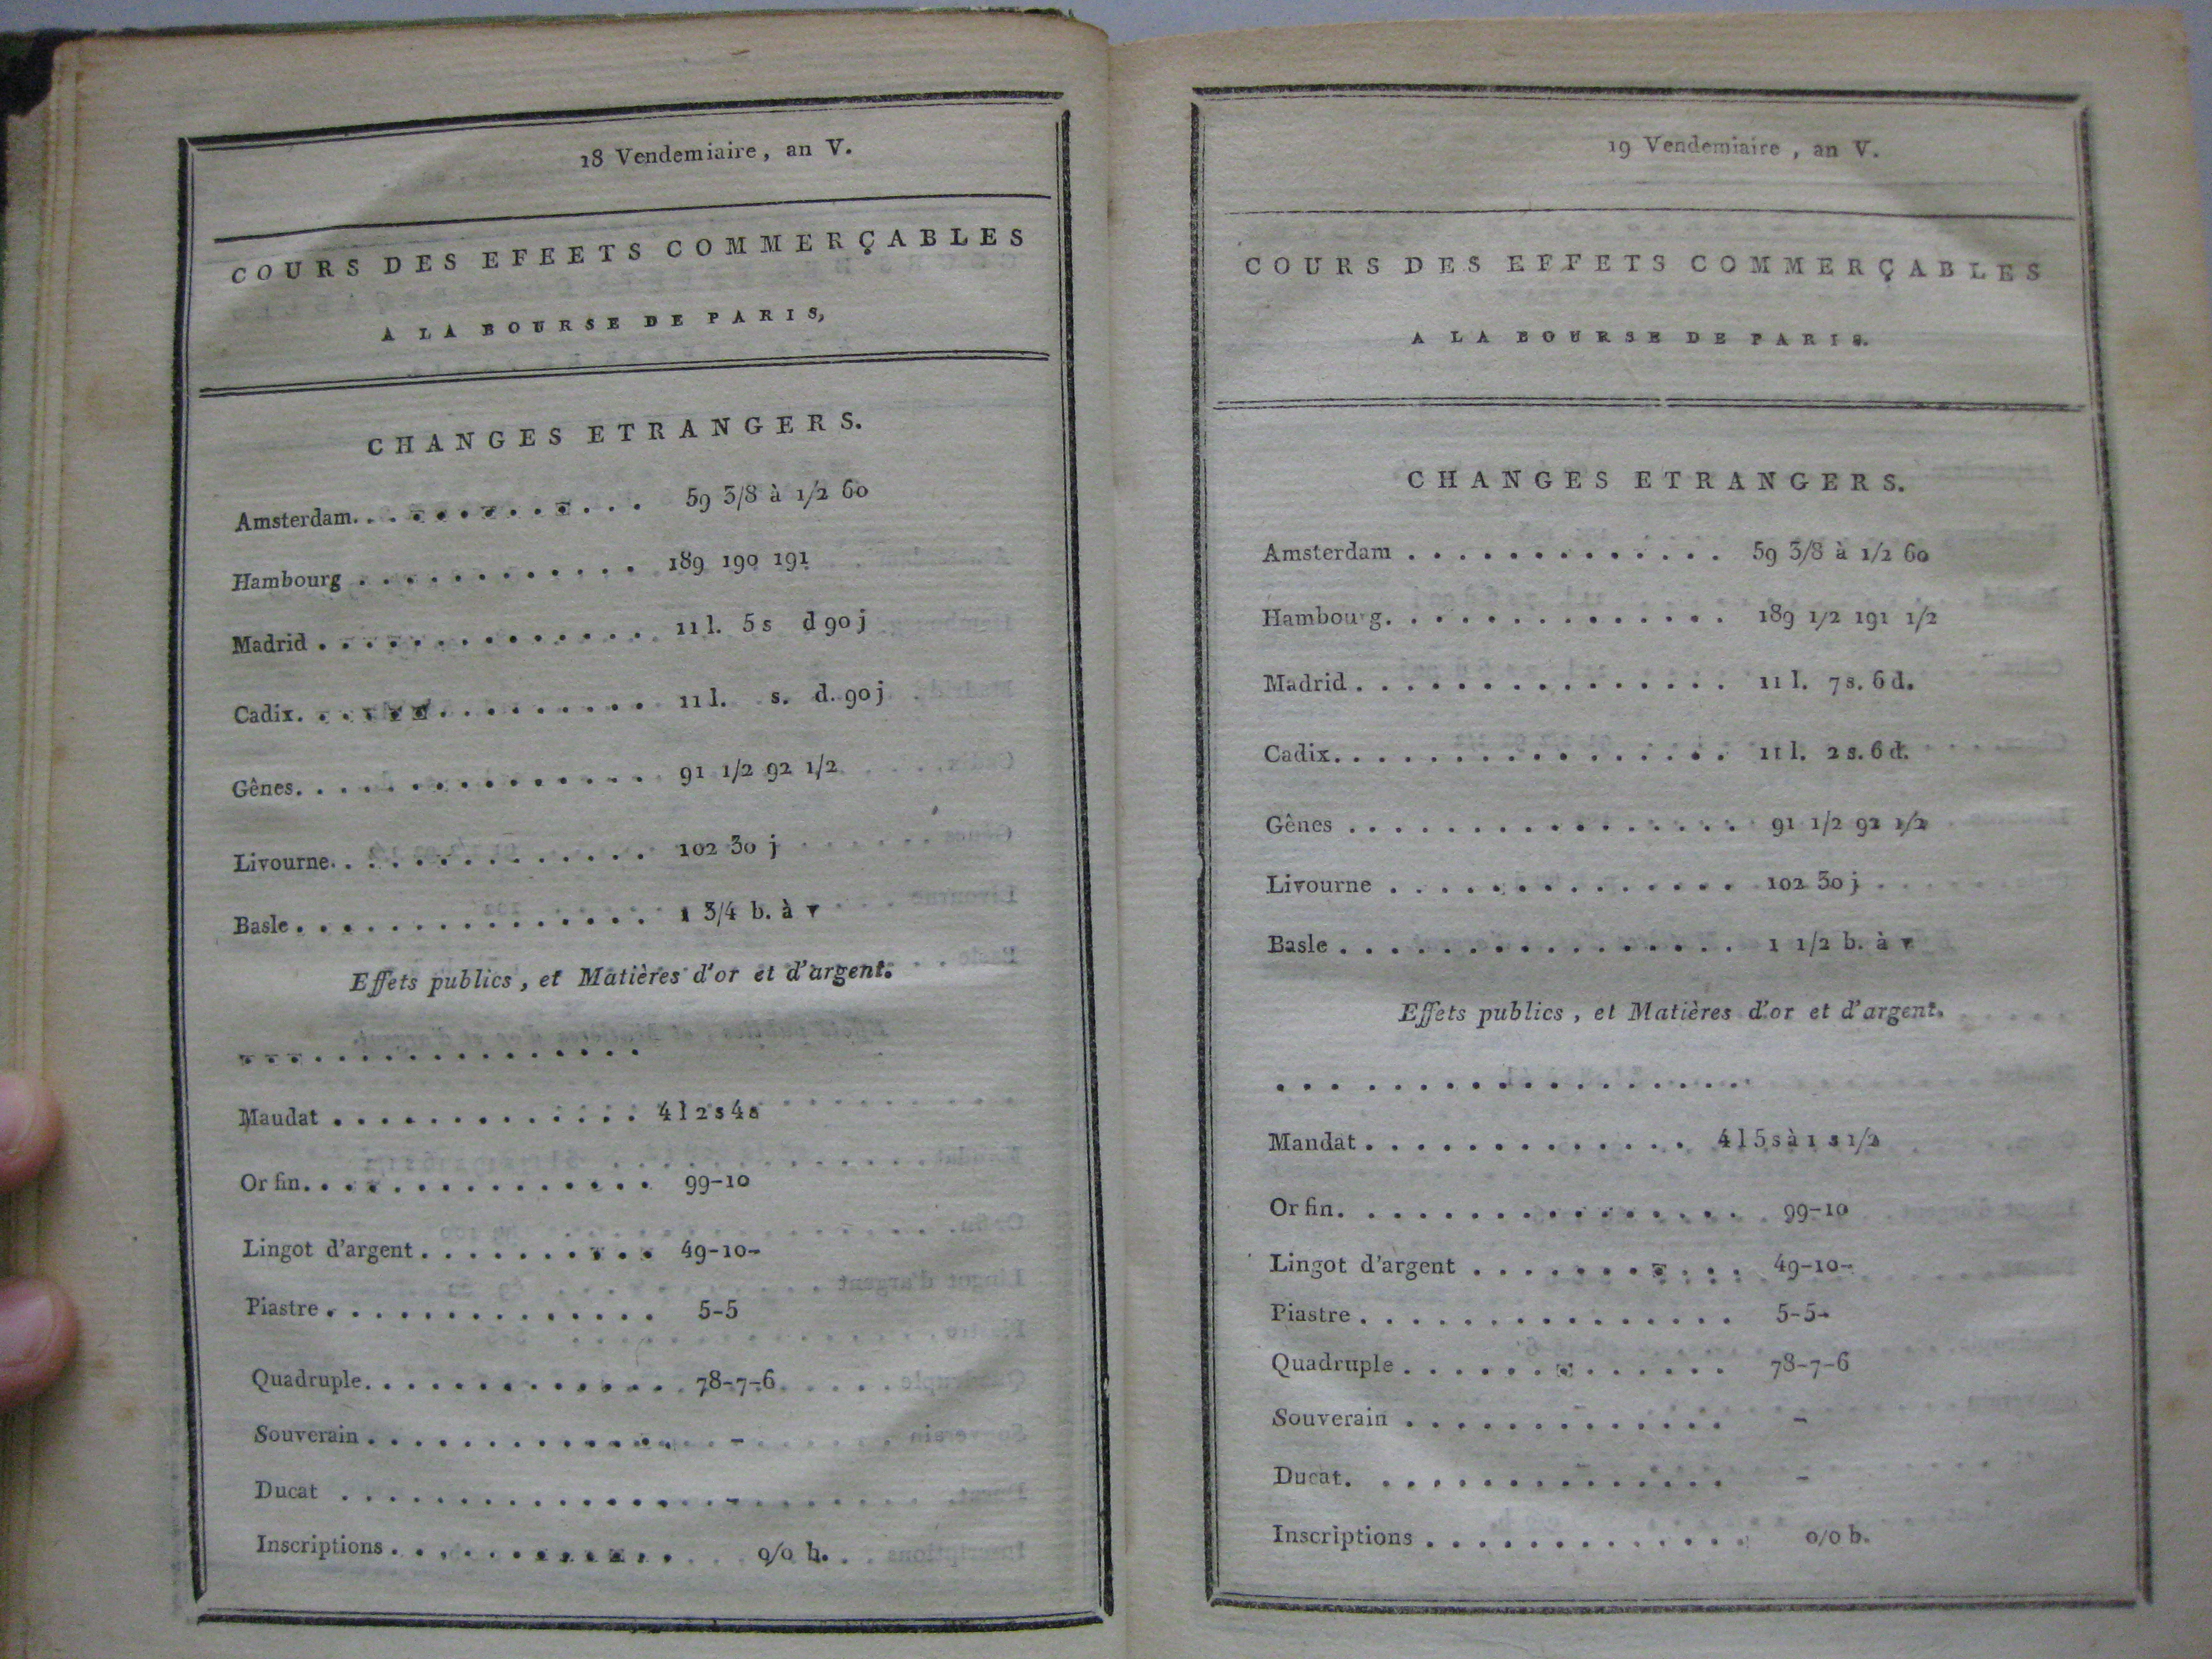 18 Vendemiaire, an V.
COURS DES EFEETS COMMERÇABLES
A LA BOURSE DE PARIS,
CHANGES ETRANGERS.
Amsterdam. . . . . . . . . . . . 59 3/8 à 1/2 60
Hambourg . . . . . . . . . . . . 189 190 191
Madrid . . . . . . . . . . . . . . 11 l. 5 s d 90 j
Cadix. . . . . . . . . . . . . . . 11 l. s. d. 90 j
Gênes. . . . . . . . . . . . . . . 91 1/2 92 1/2
Livourne. . . . . . . . . . . . . 102 30 j
Basle . . . . . . . . . . . . . . . 1 3/4 b. à v
Effets publics, et Matières d'or et d'argent.
. . . . . . . . . . . . . . . . .
Maudat . . . . . . . . . . . . . 4 l 2 s 4 s
Or fin. . . . . . . . . . . . . . . 99-10
Lingot d'argent . . . . . . . . . . 49-10-
Piastre . . . . . . . . . . . . . . 5-5
Quadruple. . . . . . . . . . . . . 78-7-6
Souverain . . . . . . . . . . . . . -
Ducat . . . . . . . . . . . . . . . -
Inscriptions . . . . . . . . . . . . 0/0 b.
19 Vendemiaire, an V.
COURS DES EFFETS COMMERÇABLES
A LA BOURSE DE PARIS.
CHANGES ETRANGERS.
Amsterdam . . . . . . . . . . . . . 59 3/8 à 1/2 60
Hambourg. . . . . . . . . . . . . . 189 1/2 191 1/2
Madrid . . . . . . . . . . . . . . . 11 l. 7 s. 6 d.
Cadix. . . . . . . . . . . . . . . . 11 l. 2 s. 6 d.
Gênes . . . . . . . . . . . . . . . . 91 1/2 92 1/2
Livourne . . . . . . . . . . . . . . 102 30 j
Basle . . . . . . . . . . . . . . . . 1 1/2 b. à v
Effets publics, et Matières d'or et d'argent.
. . . . . . . . . . . . . . . . . . .
Mandat . . . . . . . . . . . . . . 4 l 5 s à 1 s 1/2
Or fin. . . . . . . . . . . . . . . . 99-10
Lingot d'argent . . . . . . . . . . . 49-10-
Piastre . . . . . . . . . . . . . . . 5-5-
Quadruple . . . . . . . . . . . . . . 78-7-6
Souverain . . . . . . . . . . . . . . -
Ducat. . . . . . . . . . . . . . . . -
Inscriptions . . . . . . . . . . . . . 0/0 b.